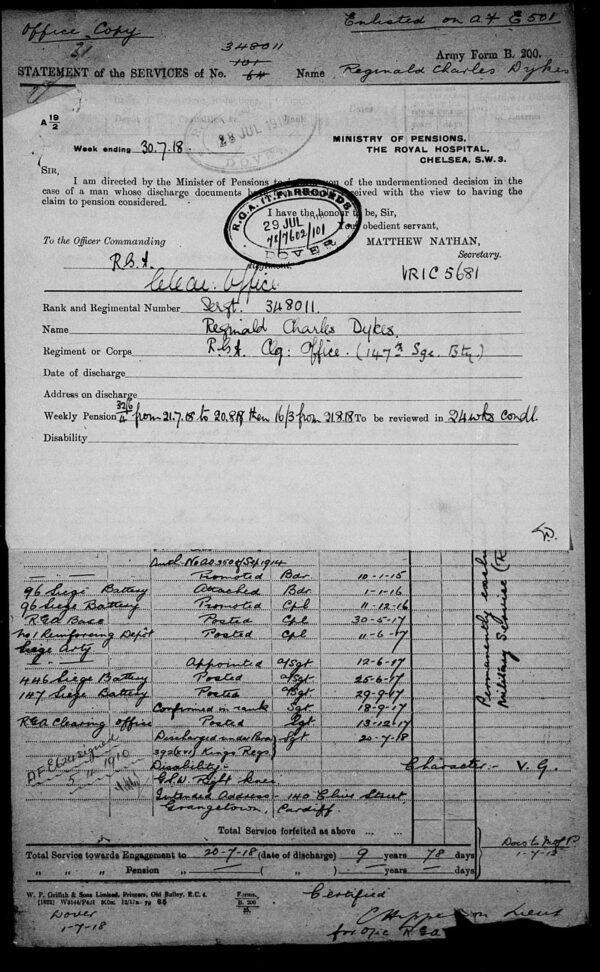 Office Copy
Enlisted on A.F. E 501
31
348011
101
Army Form B. 200.
STATEMENT of the SERVICES of No. 64 Name Reginald Charles Dykes
A 19/2
28 JUL 191
DOVER
Week ending 30.7.18.
MINISTRY OF PENSIONS,
THE ROYAL HOSPITAL,
CHELSEA, S.W. 3.
SIR,
I am directed by the Minister of Pensions to you of the undermentioned decision in the
case of a man whose discharge documents have received with the view to having the
claim to pension considered.
I have the honour to be, Sir,
Your obedient servant,
R.G.A. (T.F.) RECORDS
29 JUL
78/7602/101
DOVER
To the Officer Commanding
MATTHEW NATHAN,
Secretary.
R.G.A.
Regiment.
Office
VR1C 5681
Rank and Regimental Number Sergt. 348011.
Name Reginald Charles Dykes,
Regiment or Corps R.G.A. Clg: Office. (147th Sge. Bty.)
Date of discharge
Address on discharge
Weekly Pension 32/6 from 21.7.18 to 20.8.18 then 16/3 from 21.8.18 To be reviewed in 24 wks condl.
Disability
Auth No AO 350 of Sep 1914
Promoted Bdr 10-1-15
96 Siege Battery Attached Bdr 1-1-16
96 Siege Battery Promoted Cpl 11-12-16
RGA Base Posted Cpl 30-5-17
No 1 Reinforcing Depôt Posted Cpl 11-6-17
Siege Arty
Appointed a/Sgt 12-6-17
446 Siege Battery Posted a/Sgt 25-6-17
147 Siege Battery Posted a/Sgt 29-9-17
Confirmed in rank Sgt 18-9-17
RGA Clearing Office Posted Sgt 13-12-17
Discharged under Para Sgt 20-7-18
392 Kings Regs.
Permanently
Military Service
AF E624 signed
5 4 1910
Disability:-
G.S.W. Right Knee
Character:- V. G.
Intended Address - 140 Clive Street,
Grangetown, Cardiff.
Total Service forfeited as above ... ...
Docs to M of P
1-7-18
Total Service towards Engagement to 20-7-18 (date of discharge) 9 years 78 days
" " " Pension " ( " ) years days
W. P. Griffith & Sons Limited, Printers, Old Bailey, E.C. 4.
Forms
B. 200
Certified
Dover
1-7-18
Lieut
for O i/c RGA